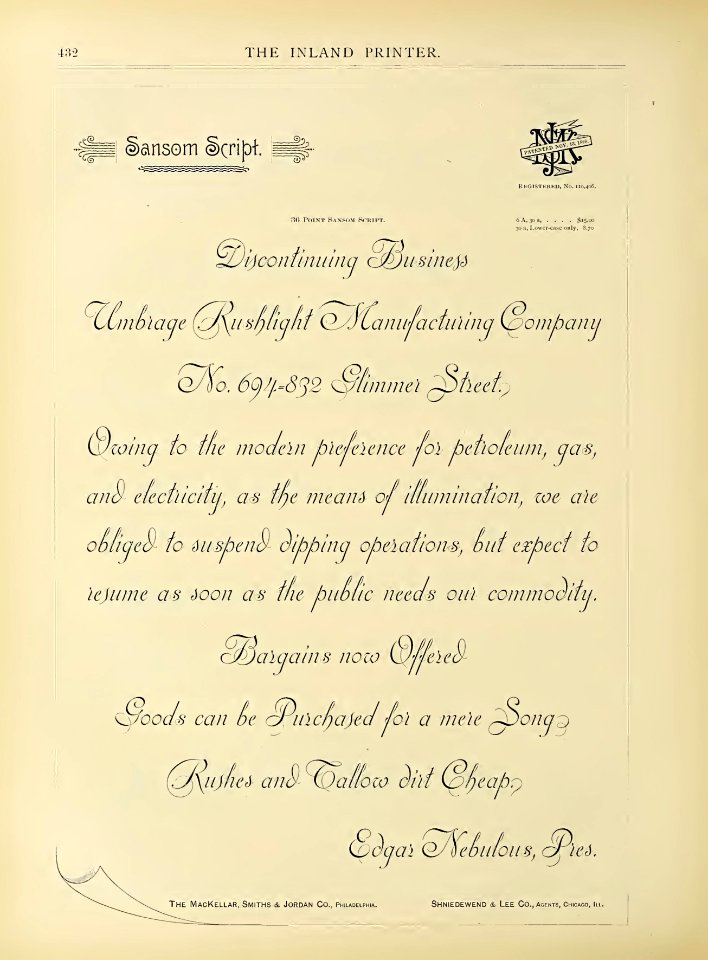 432
THE INLAND PRINTER.
Sansom Script.
PATENTED NOV.
REGISTERED, No. 120,416.
36 POINT SANSOM SCRIPT.
6 A, 30 a, . . . . $15.00
30 a, Lower-case only, 8.70
Discontinuing Business
Umbrage Rushlight Manufacturing Company
No. 694-832 Glimmer Street.
Owing to the modern preference for petroleum, gas,
and electricity, as the means of illumination, we are
obliged to suspend dipping operations, but expect to
resume as soon as the public needs our commodity.
Bargains now Offered
Goods can be Purchased for a mere Song
Rushes and Tallow dirt Cheap.
Edgar Nebulous, Pres.
THE MACKELLAR, SMITHS & JORDAN CO., PHILADELPHIA.
SHNIEDEWEND & LEE CO., AGENTS, CHICAGO, ILL.